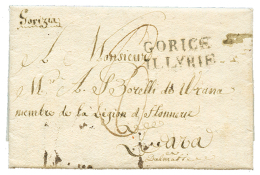 Gorizia
A Monsieur
GORICE
ILLYRIE
Mr. A. Borelli de Wrana
membre de la Légion d'Honneur
Zara
Dalmatie